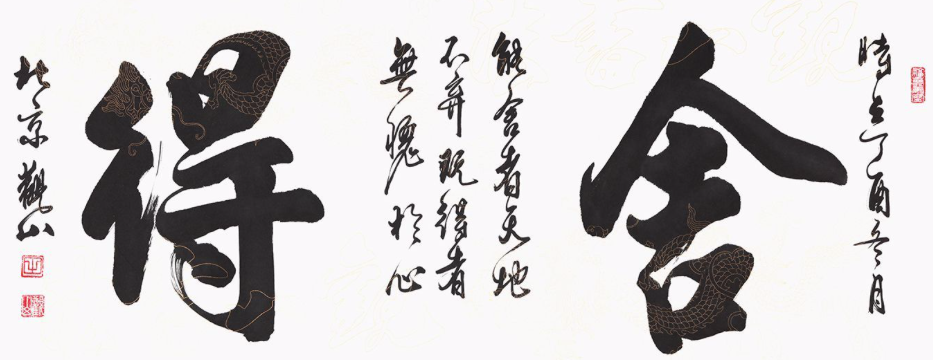 時在丁酉冬月
舍
能舍者天地
不弃既得者
無愧於心
得
北京觀山